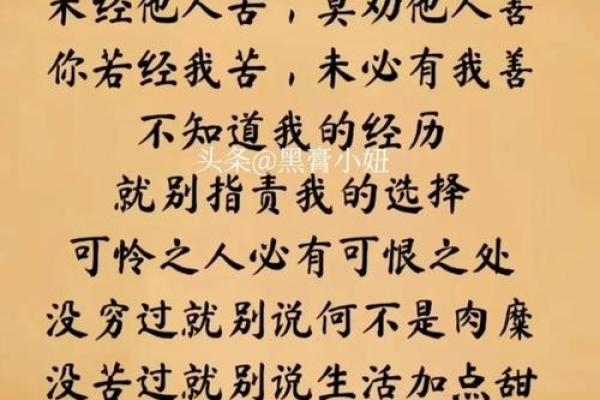 未经他人苦，莫劝他人善
你若经我苦，未必有我善
不知道我的经历
头条@黑膏小妞
就别指责我的选择
可怜之人必有可恨之处
没穷过就别说何不是肉糜
没苦过就别说生活加点甜